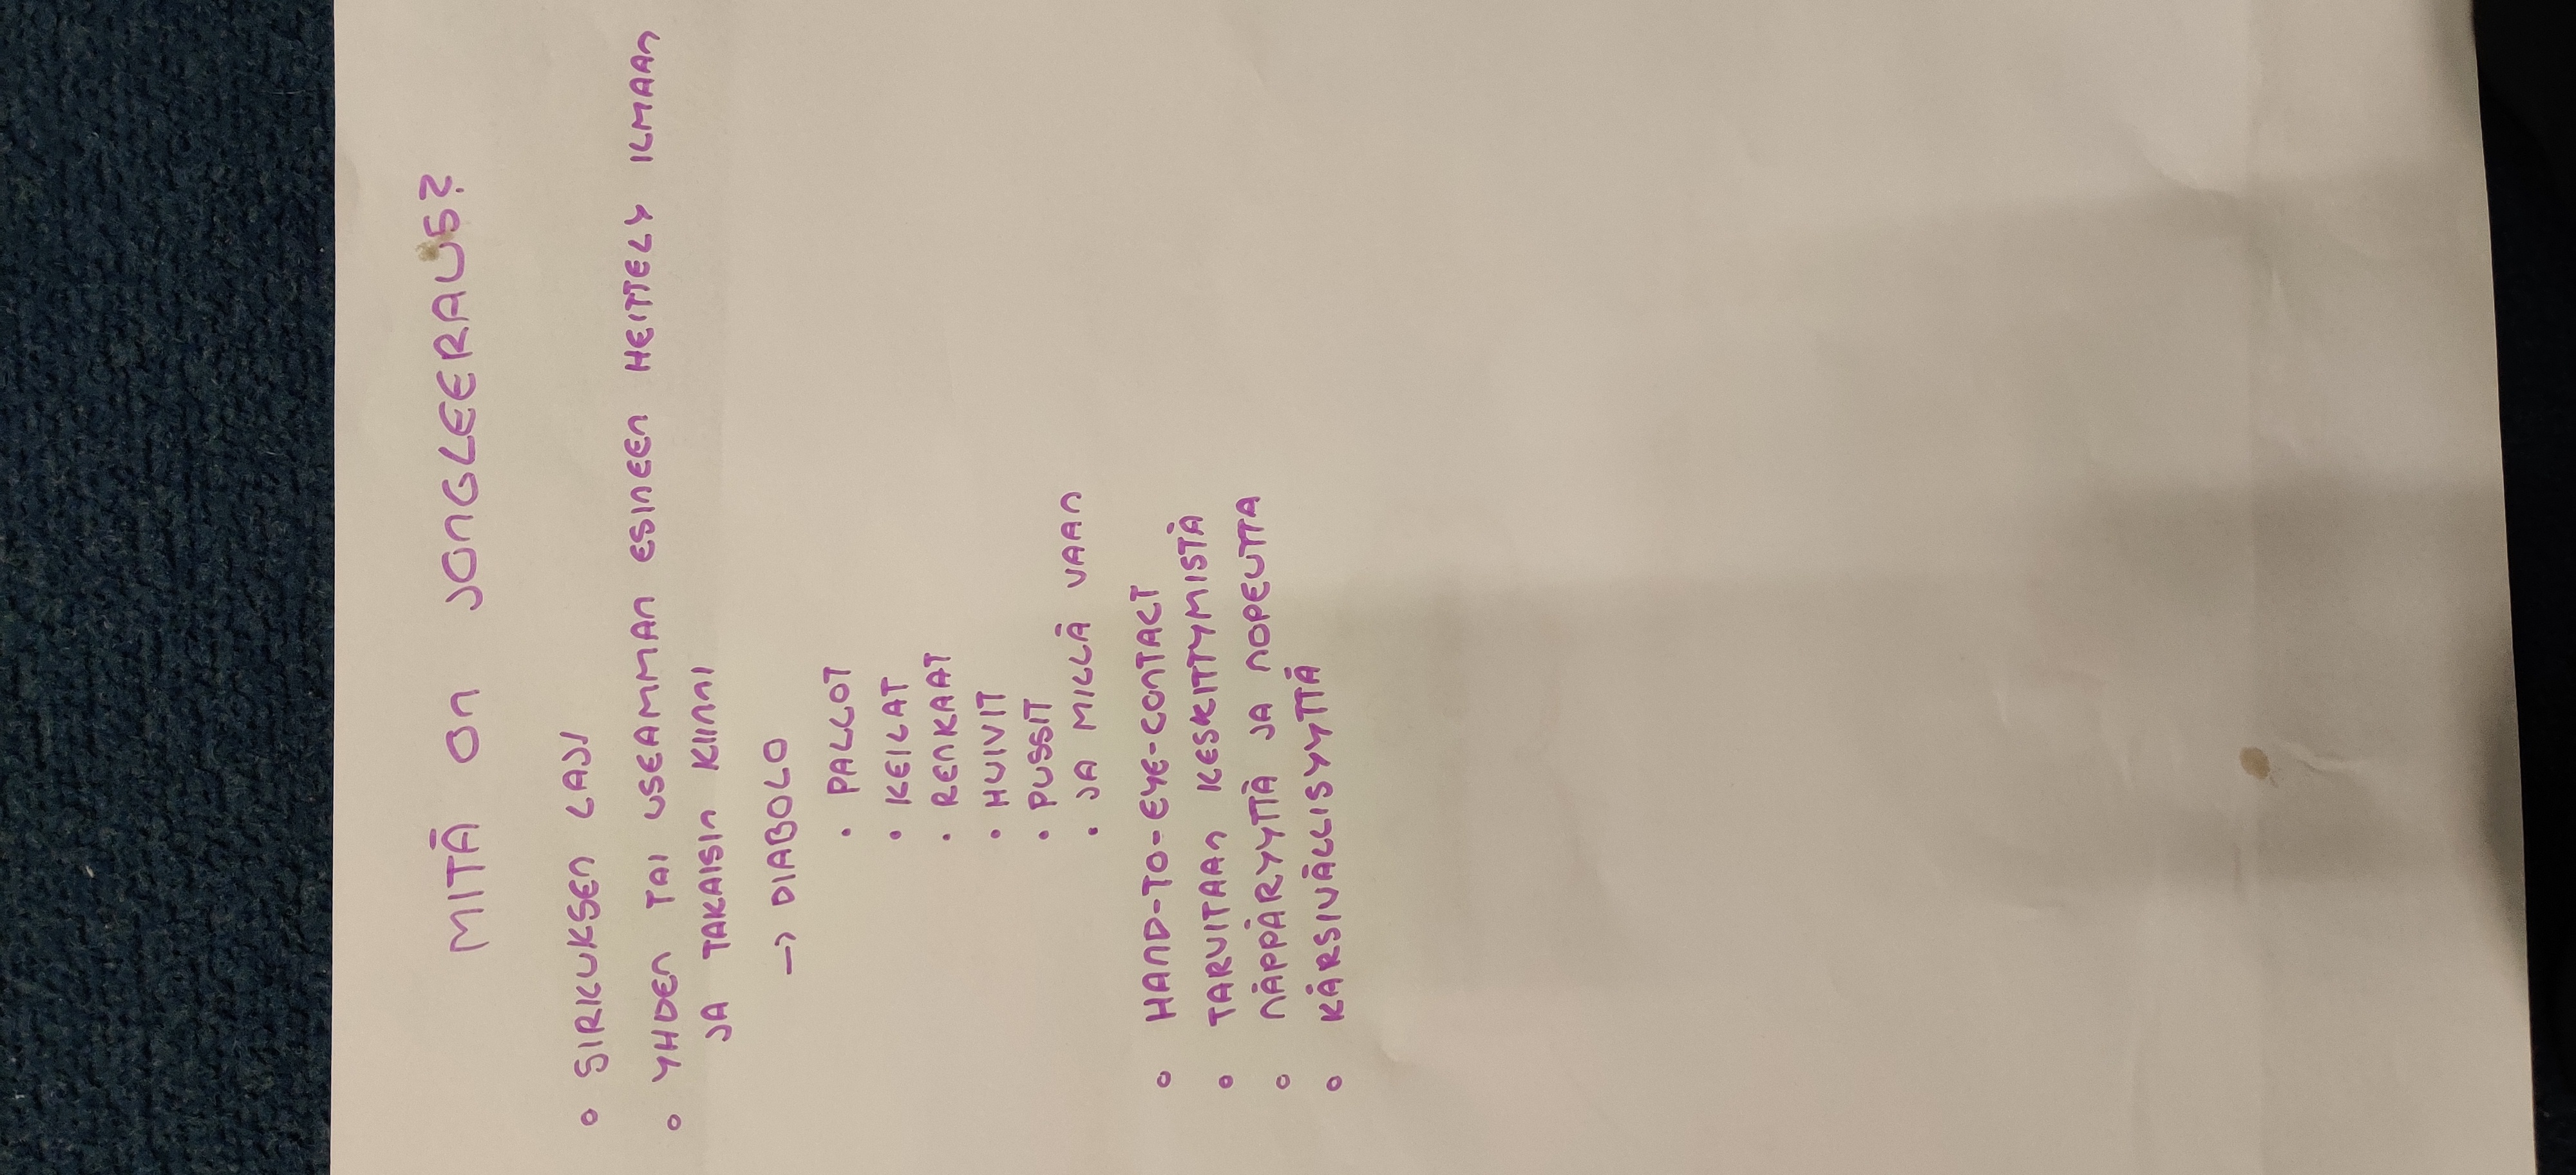 MITÄ ON JONGLEERAUS?
SIRKUKSEN LAJI
YHDEN TAI USEAMMAN ESINEEN HEITTELY ILMAAN
JA TAKAISIN KIINNI
→ DIABOLO
• PALLOT
• KEILAT
• RENKAAT
• HUIVIT
• PUSSIT
• JA MILLÄ VAAN
HAND-TO-EYE-CONTACT
TARVITAAN KESKITTYMISTÄ
NÄPPÄRYYTTÄ JA NOPEUTTA
KÄRSIVÄLLISYYTTÄ